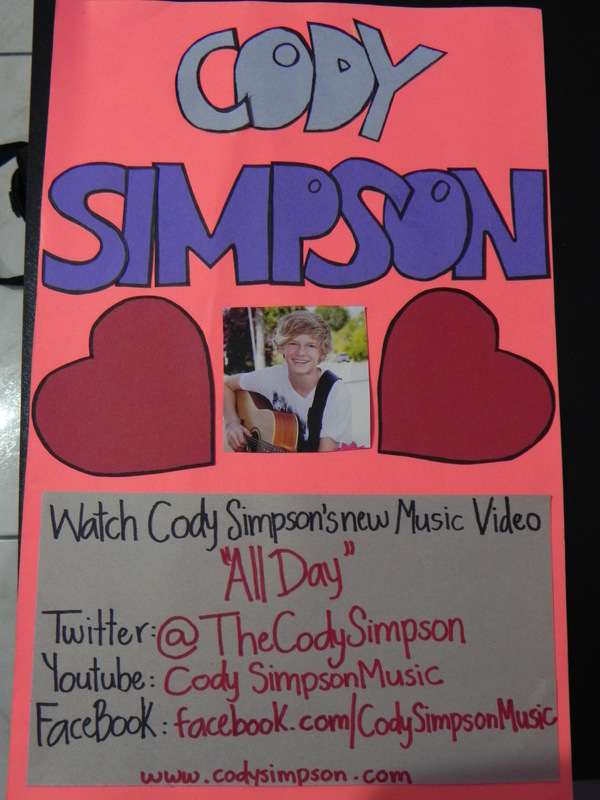 CODY
SIMPSON
Watch Cody Simpson's new Music Video
"All Day"
Twitter: @TheCodySimpson
Youtube: Cody SimpsonMusic
FaceBooK: facebook.com/CodySimpsonMusic
www.codysimpson.com